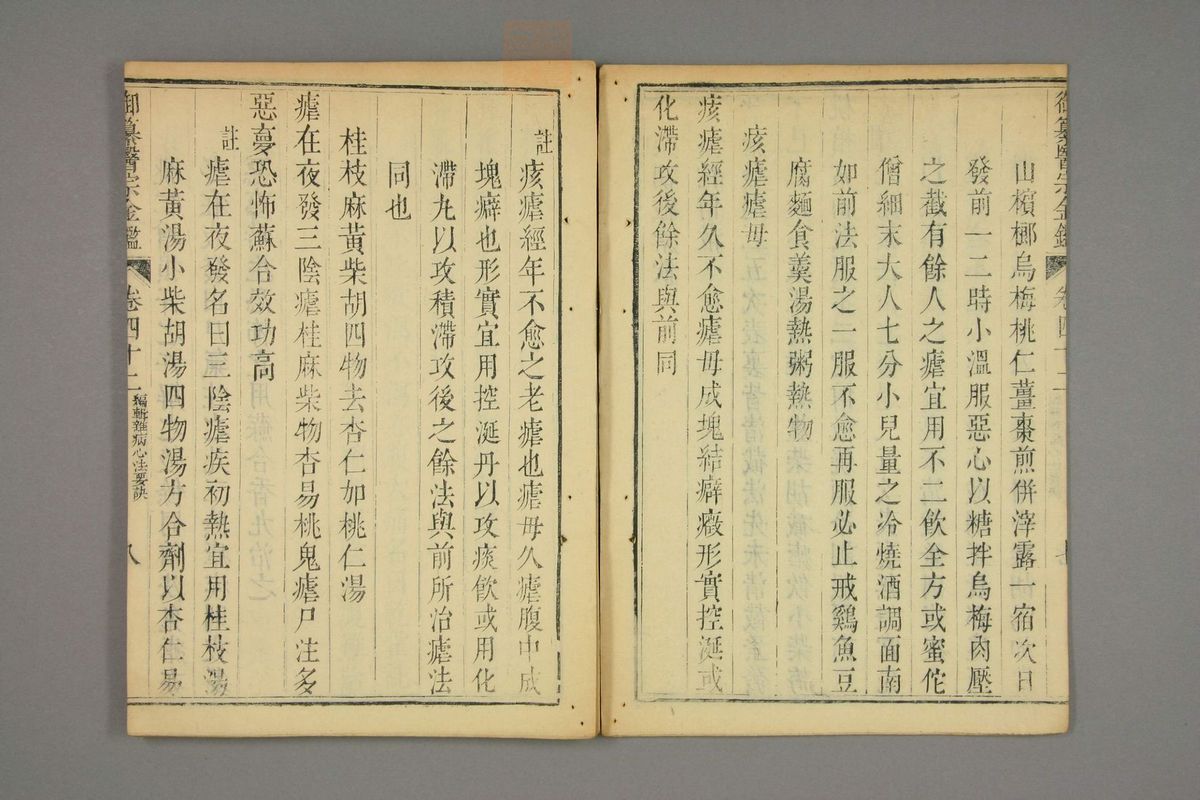 御纂醫宗金鑑 卷四十二 七
山檳榔烏梅桃仁薑棗煎併滓露一宿次日
發前一二時小溫服惡心以糖拌烏梅肉壓
之截有餘人之瘧宜用不二飲全方或蜜佗
僧細末大人七分小兒量之冷燒酒調面南
如前法服之一服不愈再服必止戒鷄魚豆
腐麵食羹湯熱粥熱物
痎瘧瘧母
痎瘧經年久不愈瘧母成塊結癖癥形實控涎或
化滯攻後餘法與前同
註
痎瘧經年不愈之老瘧也瘧母久瘧腹中成
塊癖也形實宜用控涎丹以攻痰飲或用化
滯丸以攻積滯攻後之餘法與前所治瘧法
同也
桂枝麻黃柴胡四物去杏仁加桃仁湯
瘧在夜發三陰瘧桂麻柴物杏易桃鬼瘧尸注多
惡夢恐怖蘇合效功高
註
瘧在夜發名曰三陰瘧疾初熱宜用桂枝湯
麻黃湯小柴胡湯四物湯方合劑以杏仁易
御纂醫宗金鑑 卷四十二 編輯雜病心法要訣 八